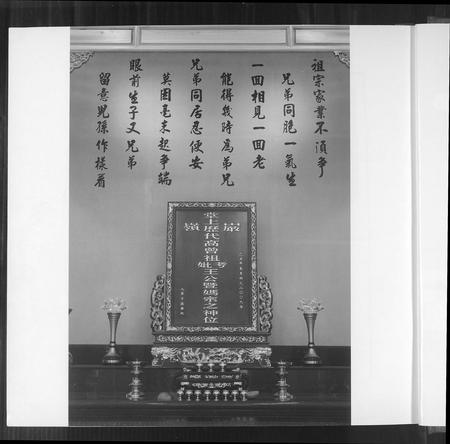 祖宗家業不須爭
兄弟同胞一氣生
一回相見一回老
能得幾時為弟兄
兄弟同居忍便安
莫因毫末起爭端
眼前生子又兄弟
留意兒孫作樣看
巖嶺
堂上歷代高曾祖考妣王公暨媽宗之神位